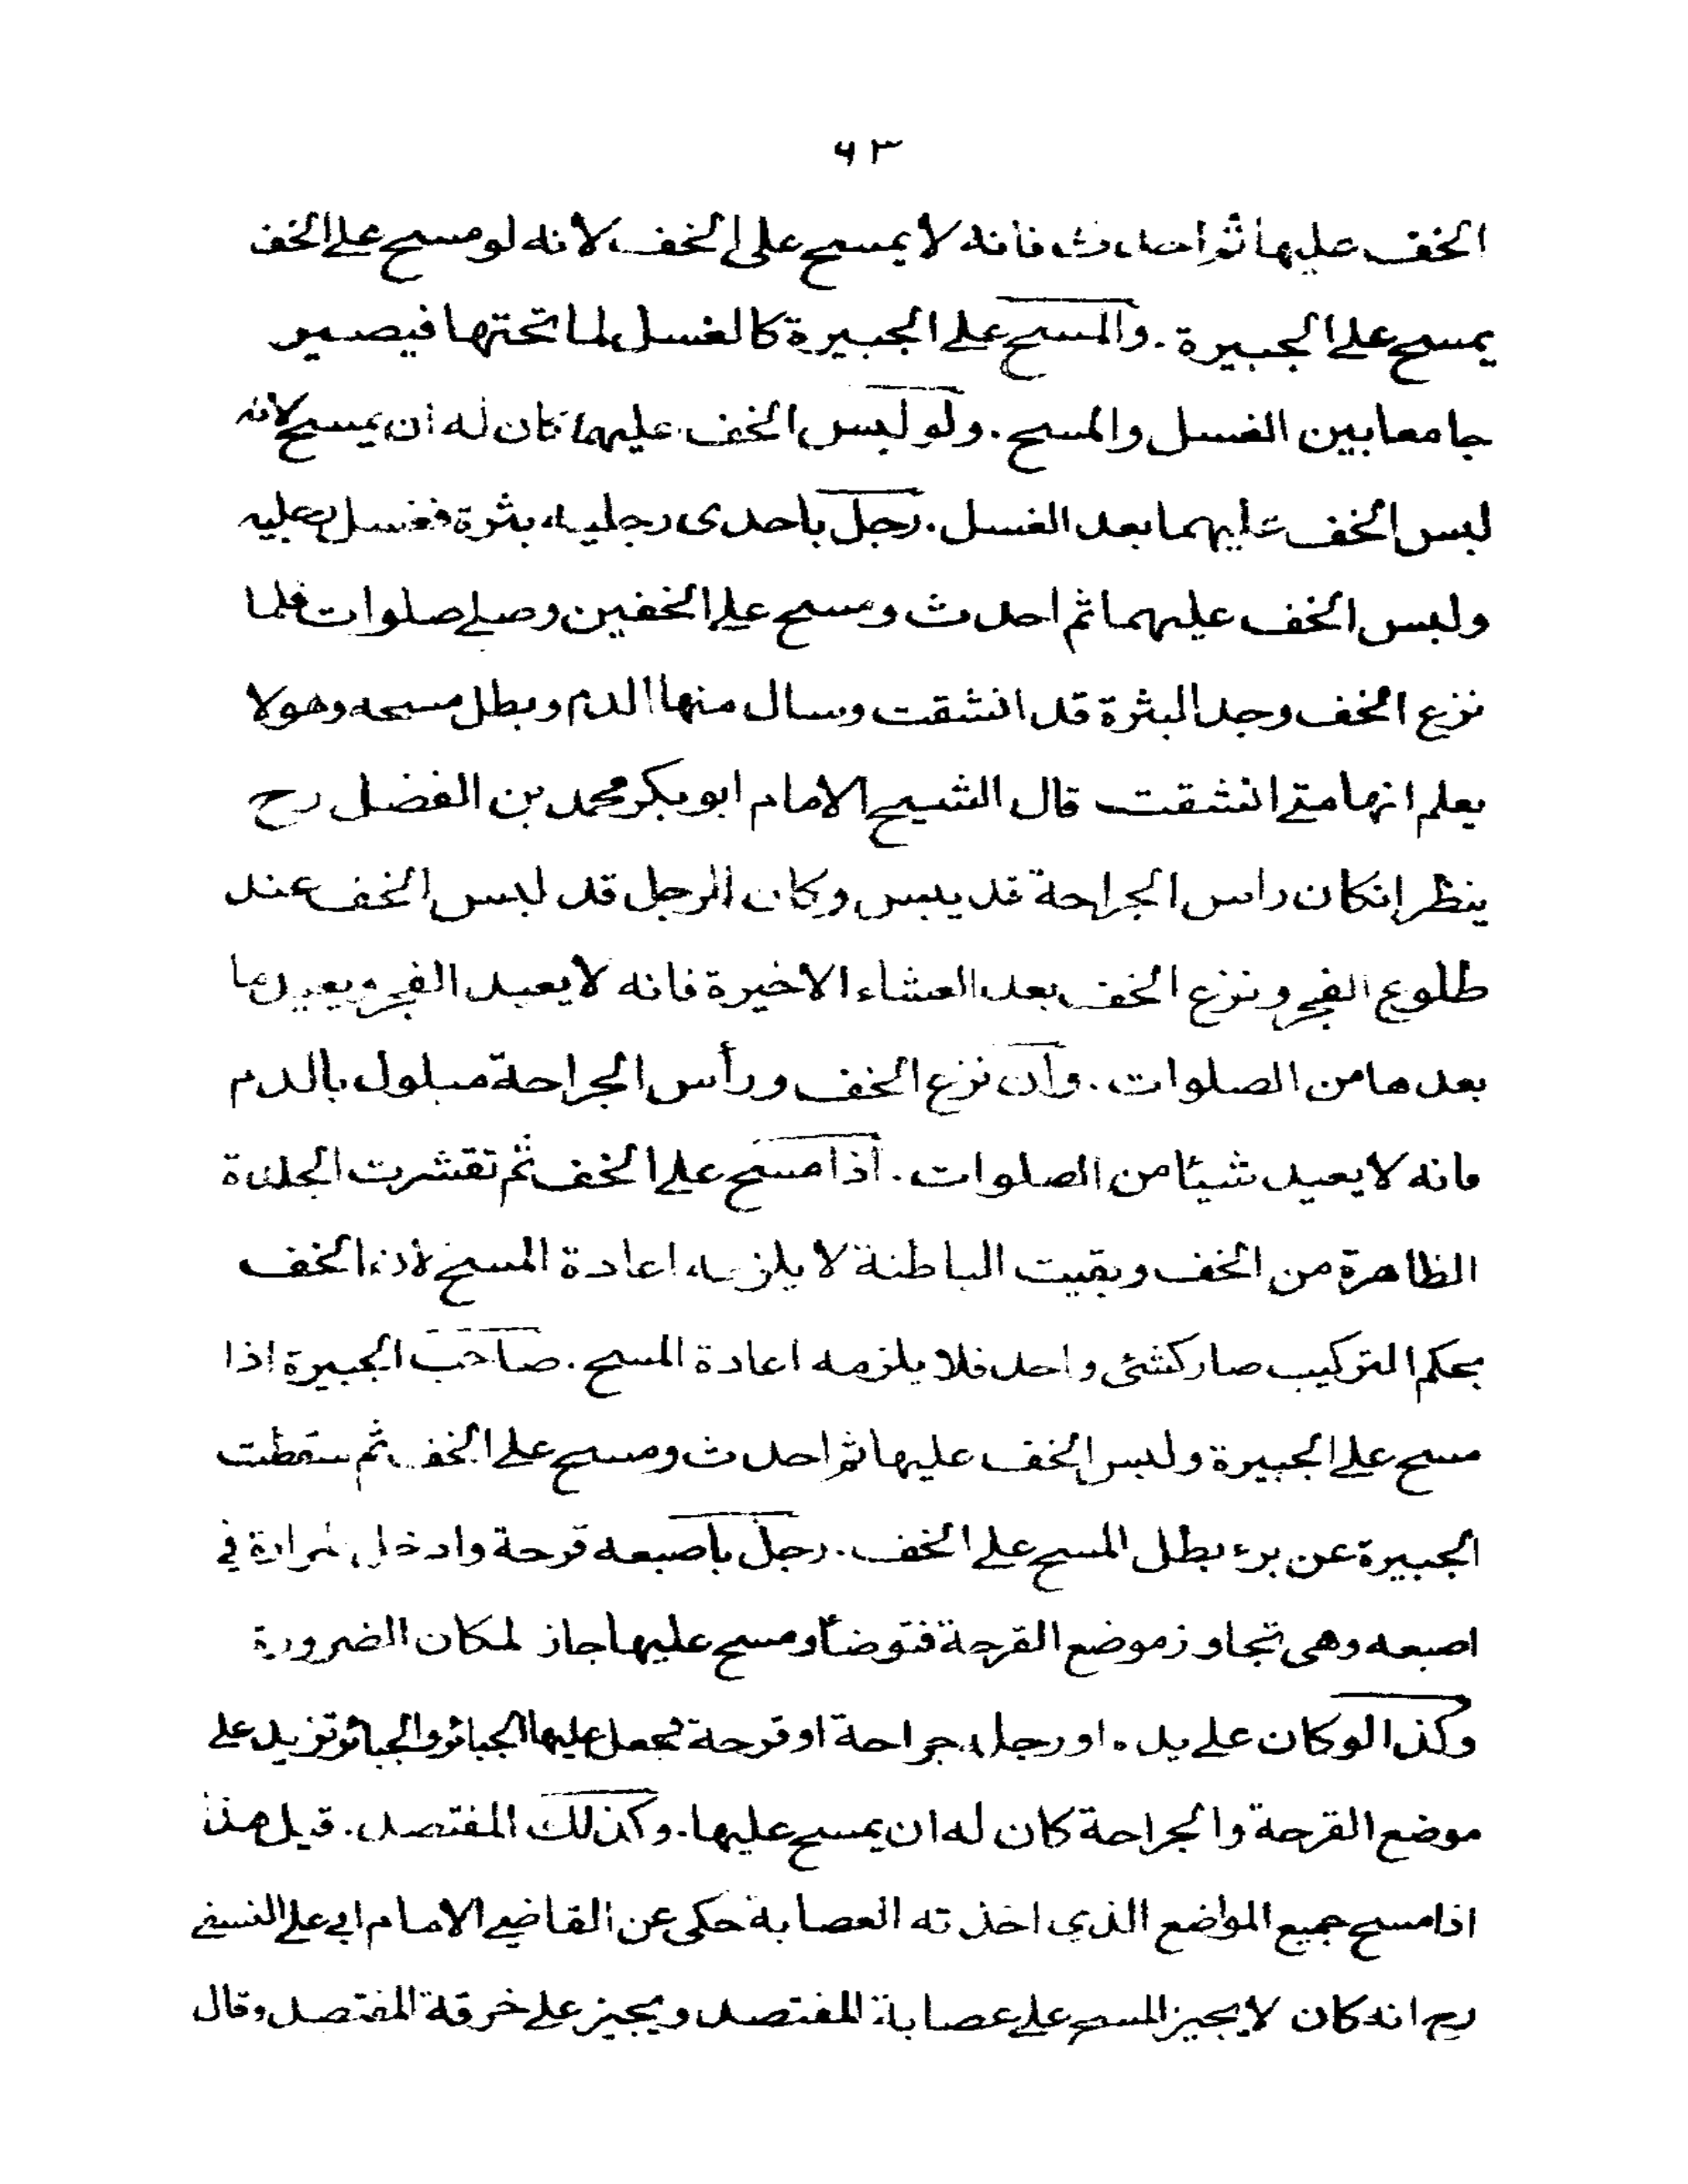 ٩٣
الخف عليها ثم احدث فانه لا يمسح على الخف لانه لو مسح على الخف
يمسح على الجبيرة . والمسح على الجبيرة كالغسل لما تحتها فيصير
جامعا بين الغسل والمسح . ولو لبس الخف عليهما كان له ان يمسح لانه
لبس الخف عليهما بعد الغسل . رجل باحدى رجليه بثرة فغسل رجليه
ولبس الخف عليهما ثم احدث ومسح على الخفين وصلى صلوات فلما
نزع الخف وجد البثرة قد انشقت وسال منها الدم وبطل مسحه وهو لا
يعلم انها متى انشقت قال الشيخ الامام ابو بكر محمد بن الفضل رح
ينظر انكان راس الجراحة قد يبس وكان الرجل قد لبس الخف عند
طلوع الفجر ونزع الخف بعد العشاء الاخيرة فانه لا يعيد الفجر ويعيد ما
بعدها من الصلوات . وان نزع الخف ورأس الجراحة مبلول بالدم
فانه لا يعيد شيئا من الصلوات . اذا مسح على الخف ثم تقشرت الجلدة
الظاهرة من الخف وبقيت الباطنة لا يلزمه اعادة المسح لان الخف
بحكم التركيب صار كشئ واحد فلا يلزمه اعادة المسح . صاحب الجبيرة اذا
مسح على الجبيرة ولبس الخف عليها ثم احدث ومسح على الخف ثم سقطت
الجبيرة عن برء بطل المسح على الخف . رجل بأصبعه قرحة وادخل مرارة في
اصبعه وهى تجاوز موضع القرحة فتوضأ ومسح عليها جاز لمكان الضرورة
وكذا لو كان على يده او رجله جراحة او قرحة فجعل عليها الجبائر والجبائر تزيد على
موضع القرحة والجراحة كان له ان يمسح عليها . وكذلك المفتصد . قيل هذا
اذا مسح جميع المواضع الذي اخذته العصابة حكى عن القاضي الامام ابي علي النسفي
رح انه كان لا يجيز المسح على عصابة المفتصد ويجيز على خرقة المفتصد وقال